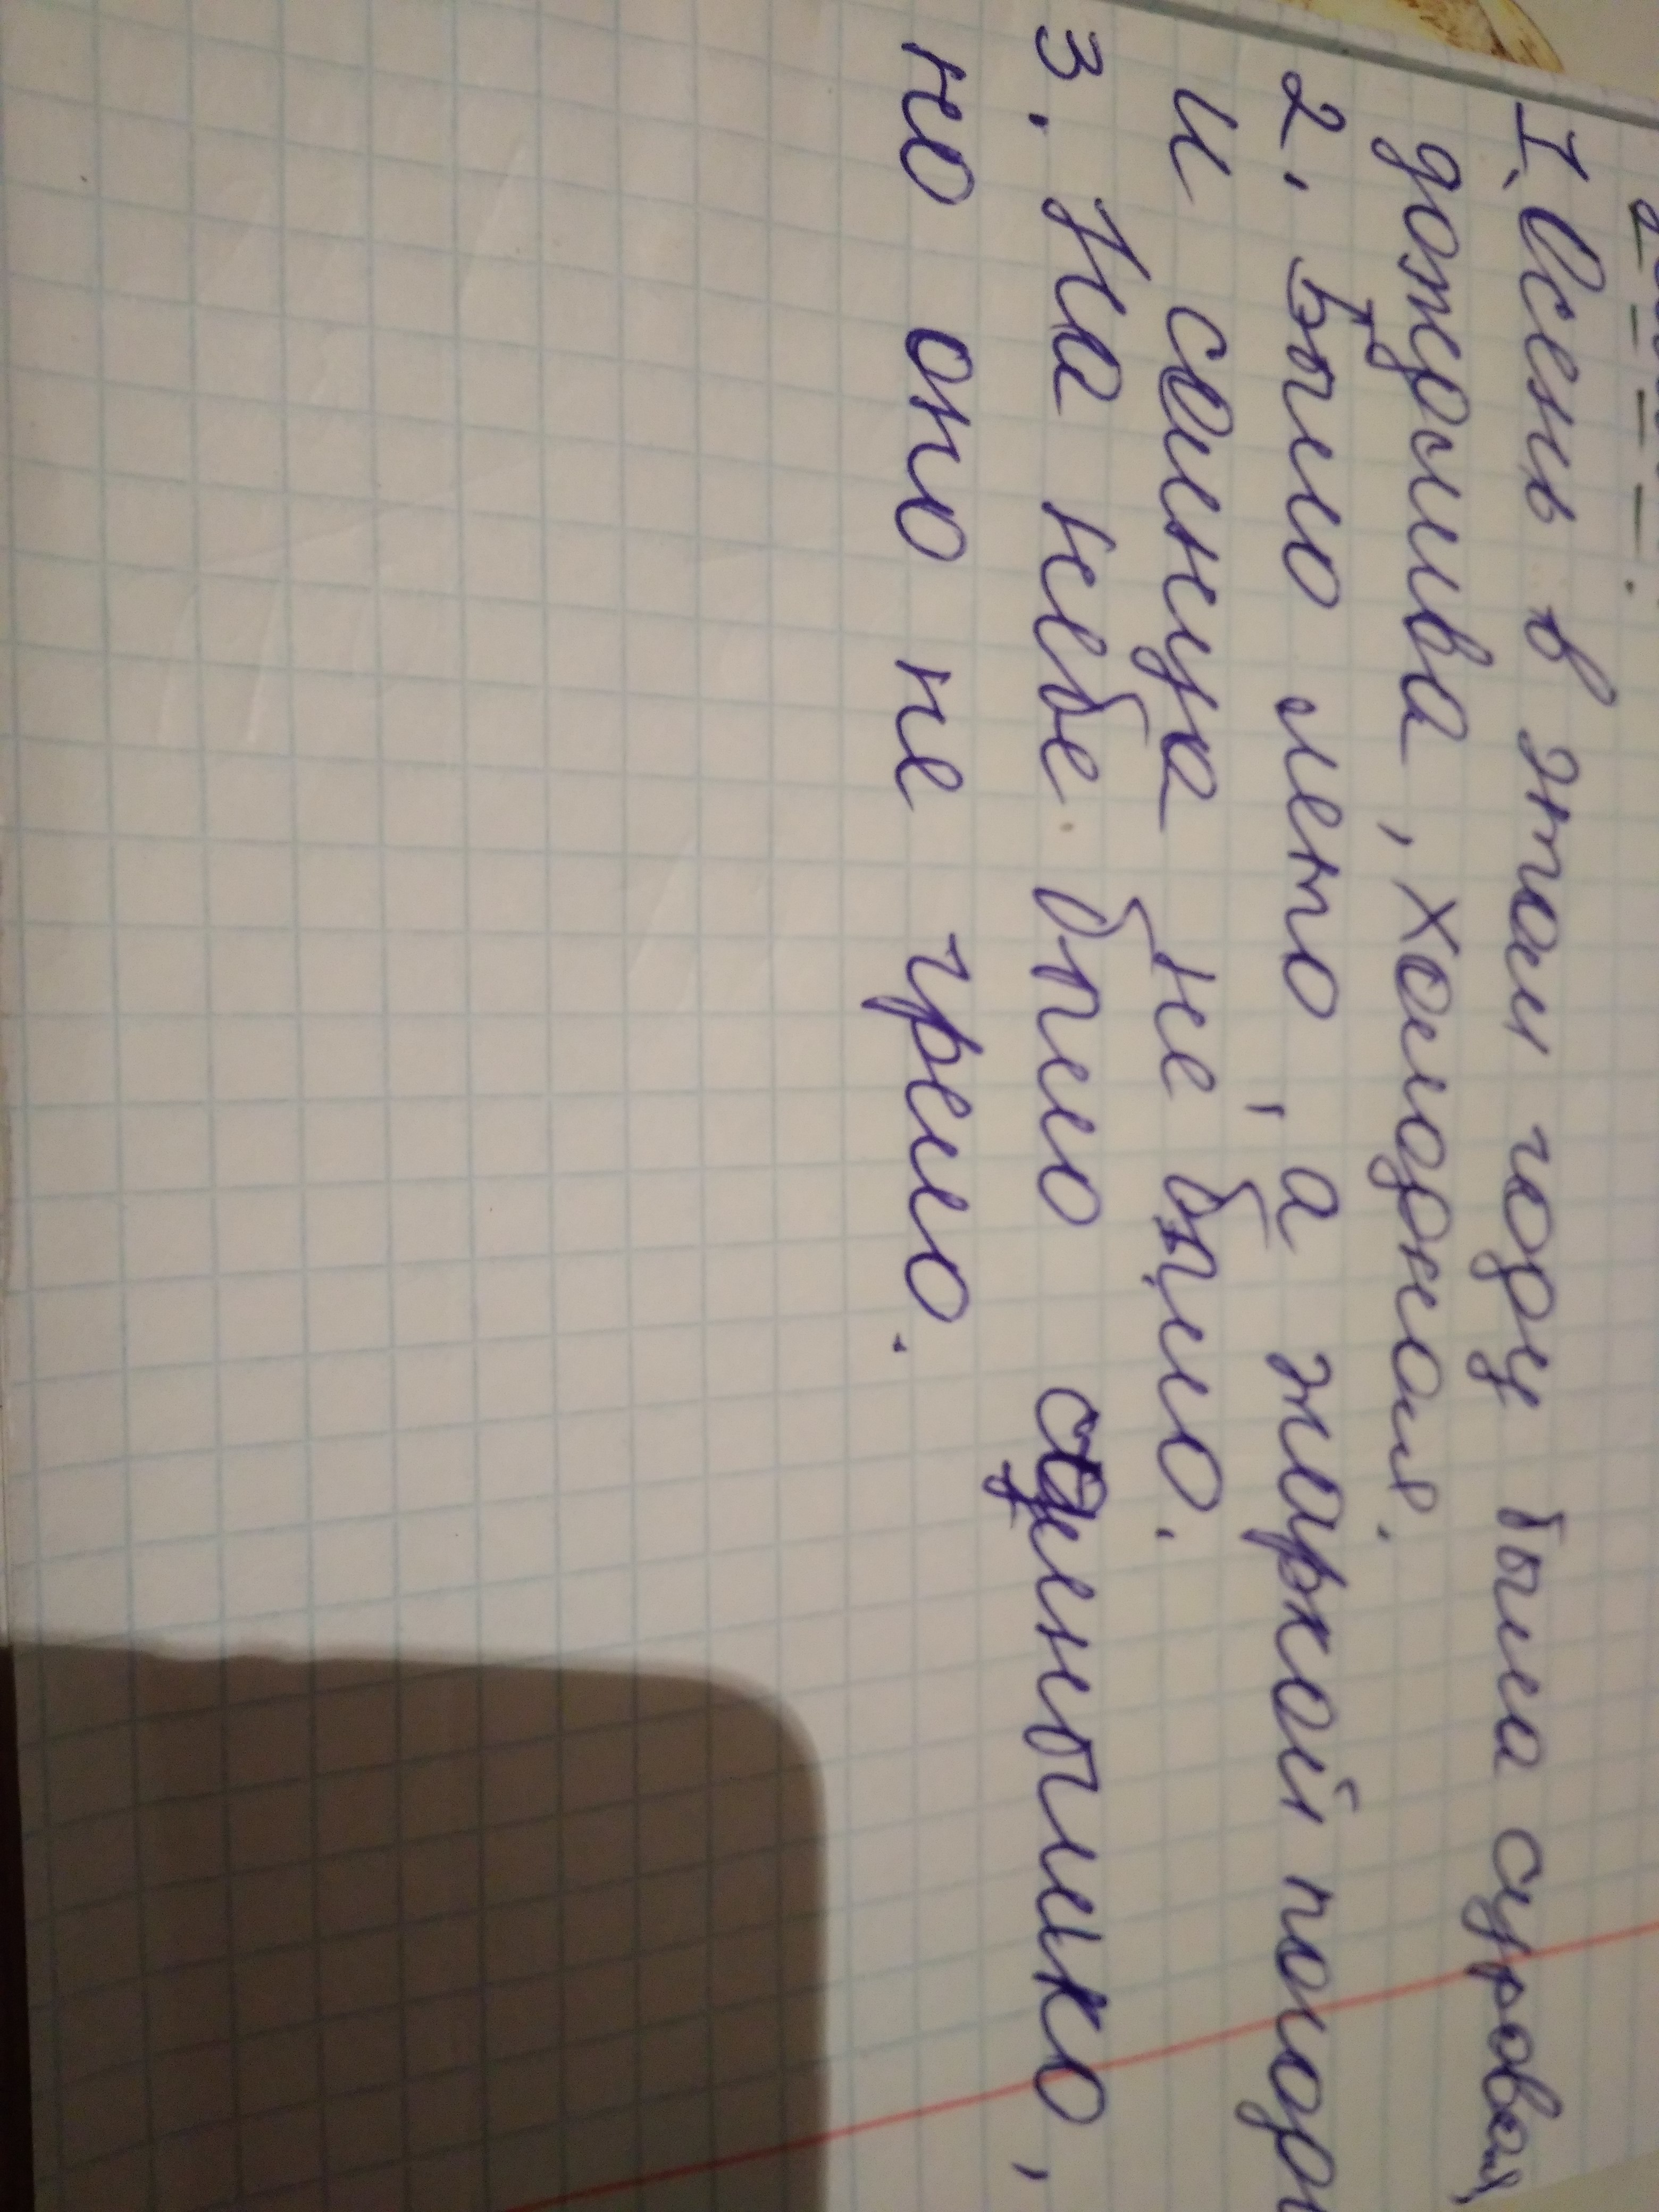 1. Осень в этом году была суровая,
дождлива, холодная.
2. Было лето, а жаркой погоды
и солнца не было.
3. На небе было солнышко,
но оно не грело.